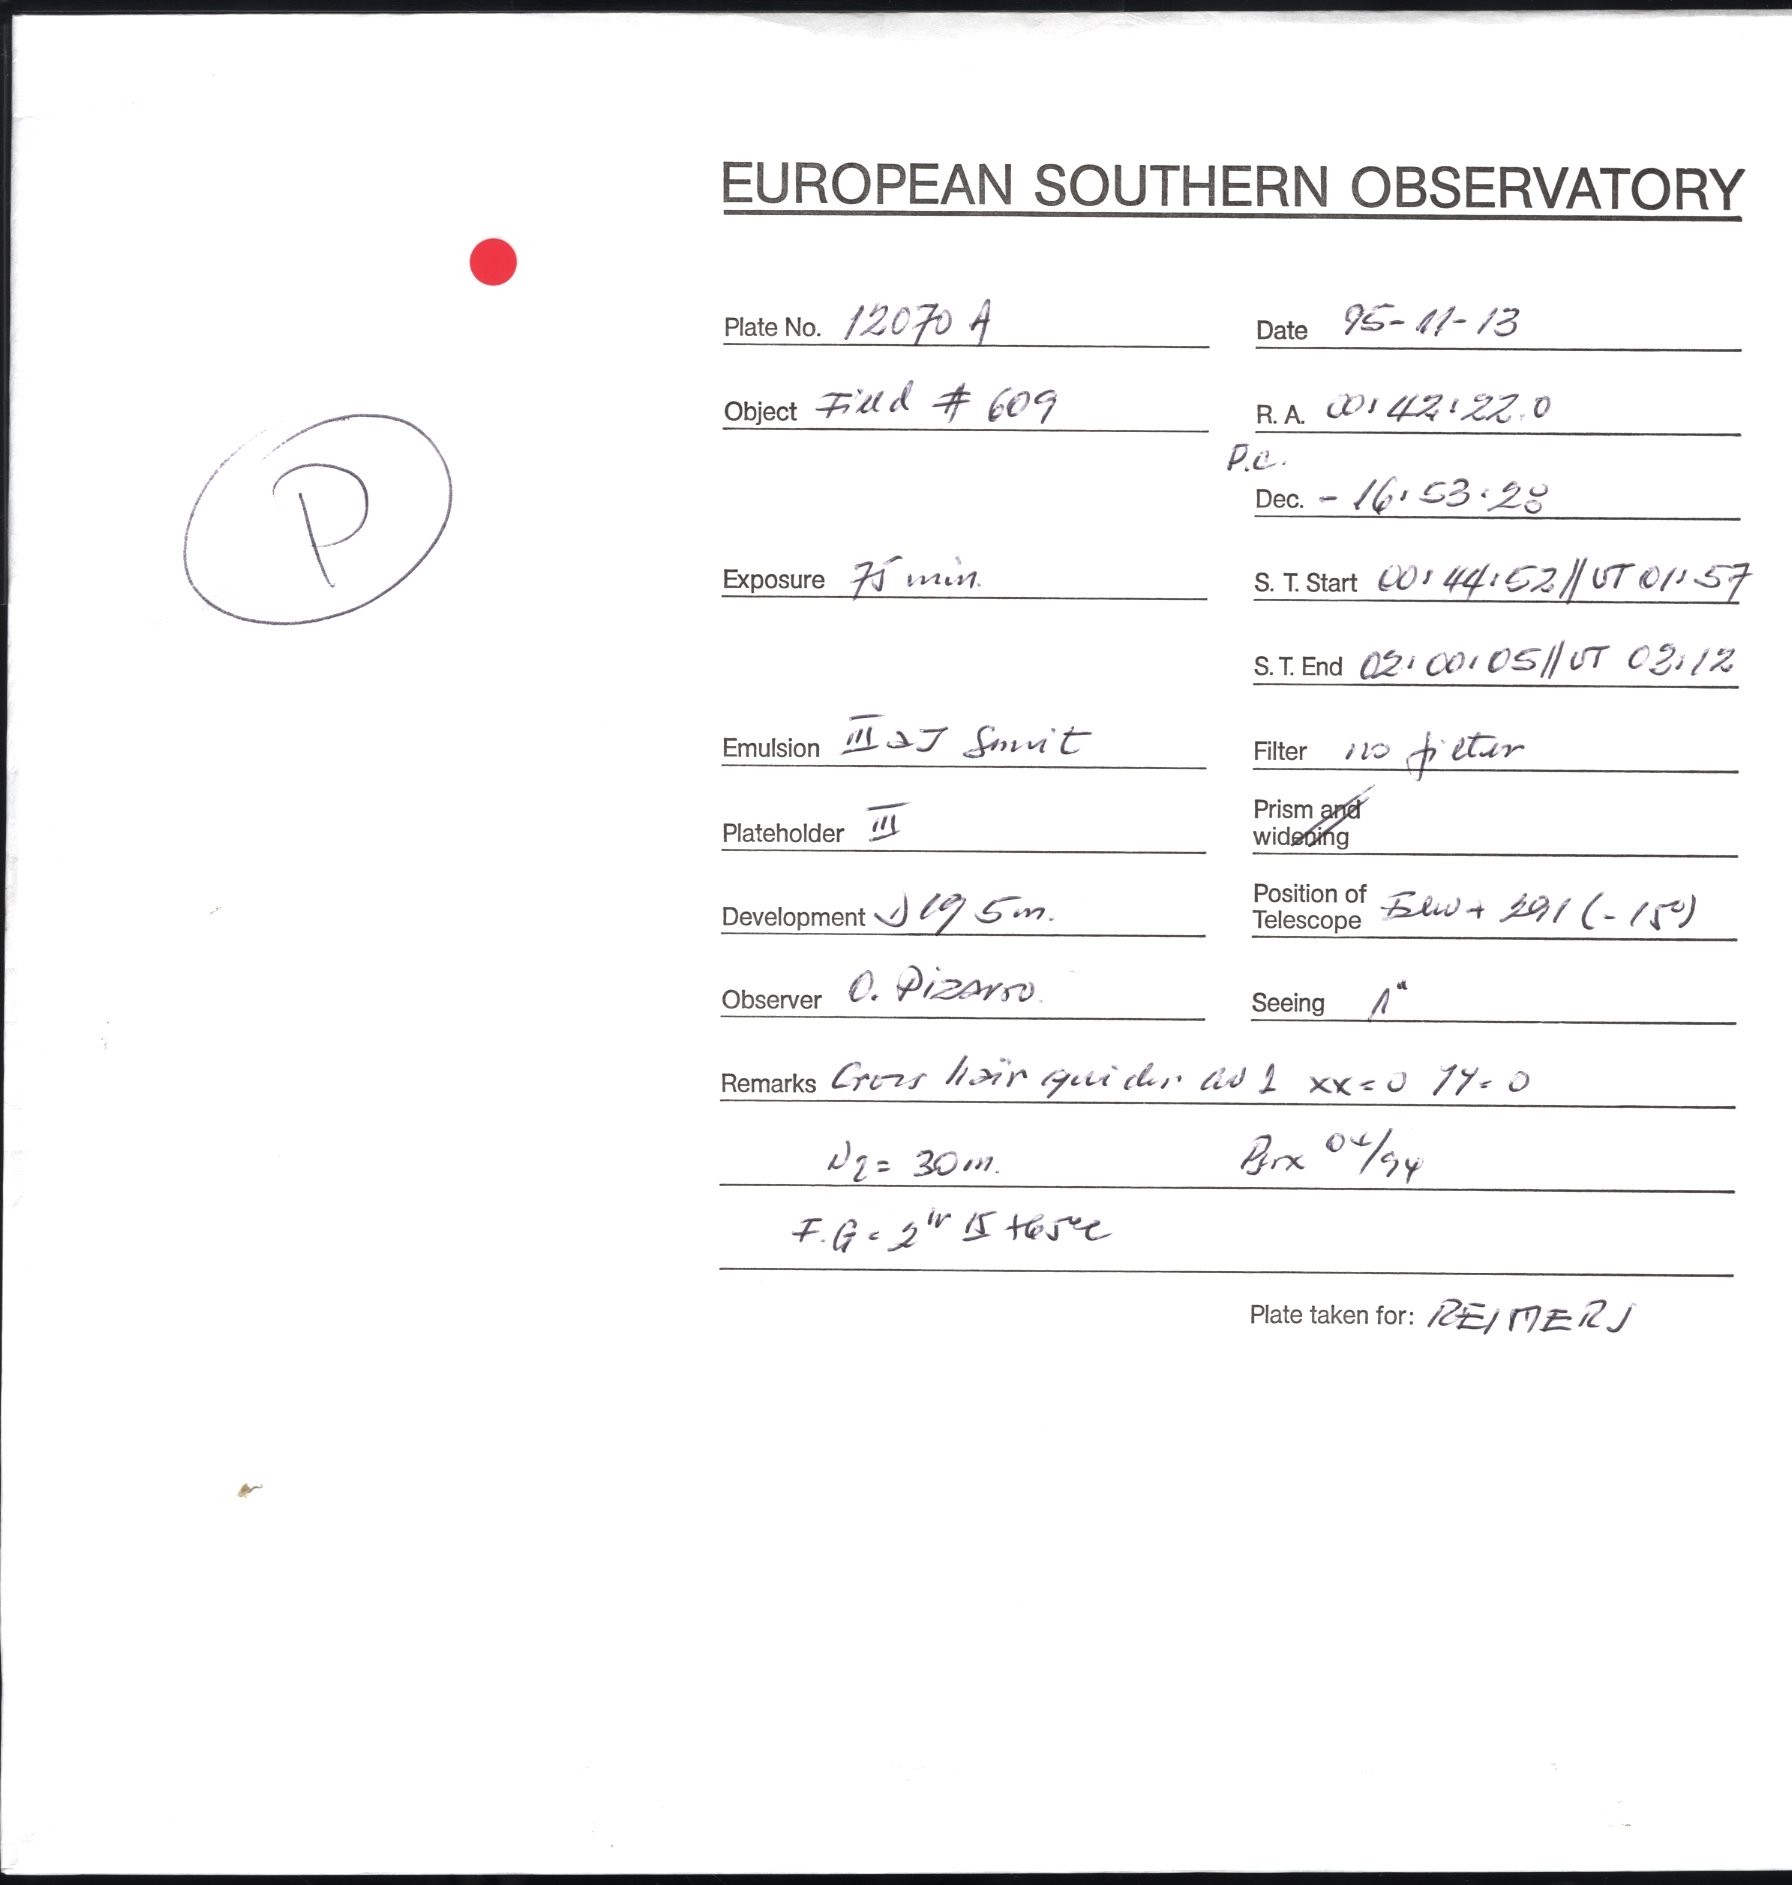 EUROPEAN SOUTHERN OBSERVATORY
Plate No. 12070 A
Date 95-11-13
Object Field # 609
R. A. 00:42:22.0
P
P.c.
Dec. - 16:53:28
Exposure 75 min.
S. T. Start 00:44:52 // UT 01:57
S. T. End 02:00:05 // UT 03:12
Emulsion III aJ
Filter no filter
Plateholder III
Prism and
widening
Development D19 5m.
Position of
Telescope + 291 (-15°)
Observer O. Pizarro
Seeing 1"
Remarks Cross hair guider xx=0 YY=0
N2 = 30 m. 04/94
F.G = +65°C
Plate taken for: REIMERS